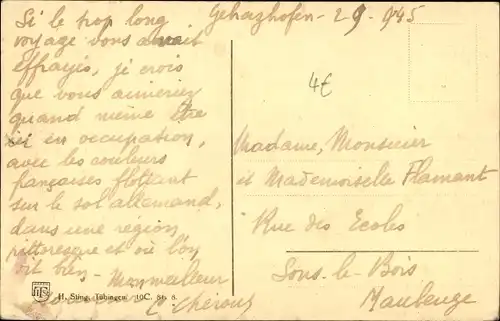 Gebrazhofen - 2 9 - 945
Si le trop long
voyage vous avait
effrayés, je crois
que vous aimeriez
quand même être
ici en occupation,
avec les couleurs
françaises flottant
sur le sol allemand,
dans une région
pittoresque et où l'on
vit bien - Mon meilleur
souvenir
4€
Madame, Monsieur
et Mademoiselle Flamant
Rue des Ecoles
Sous-le-Bois
Maubeuge
H. Sting, Tübingen 10C.